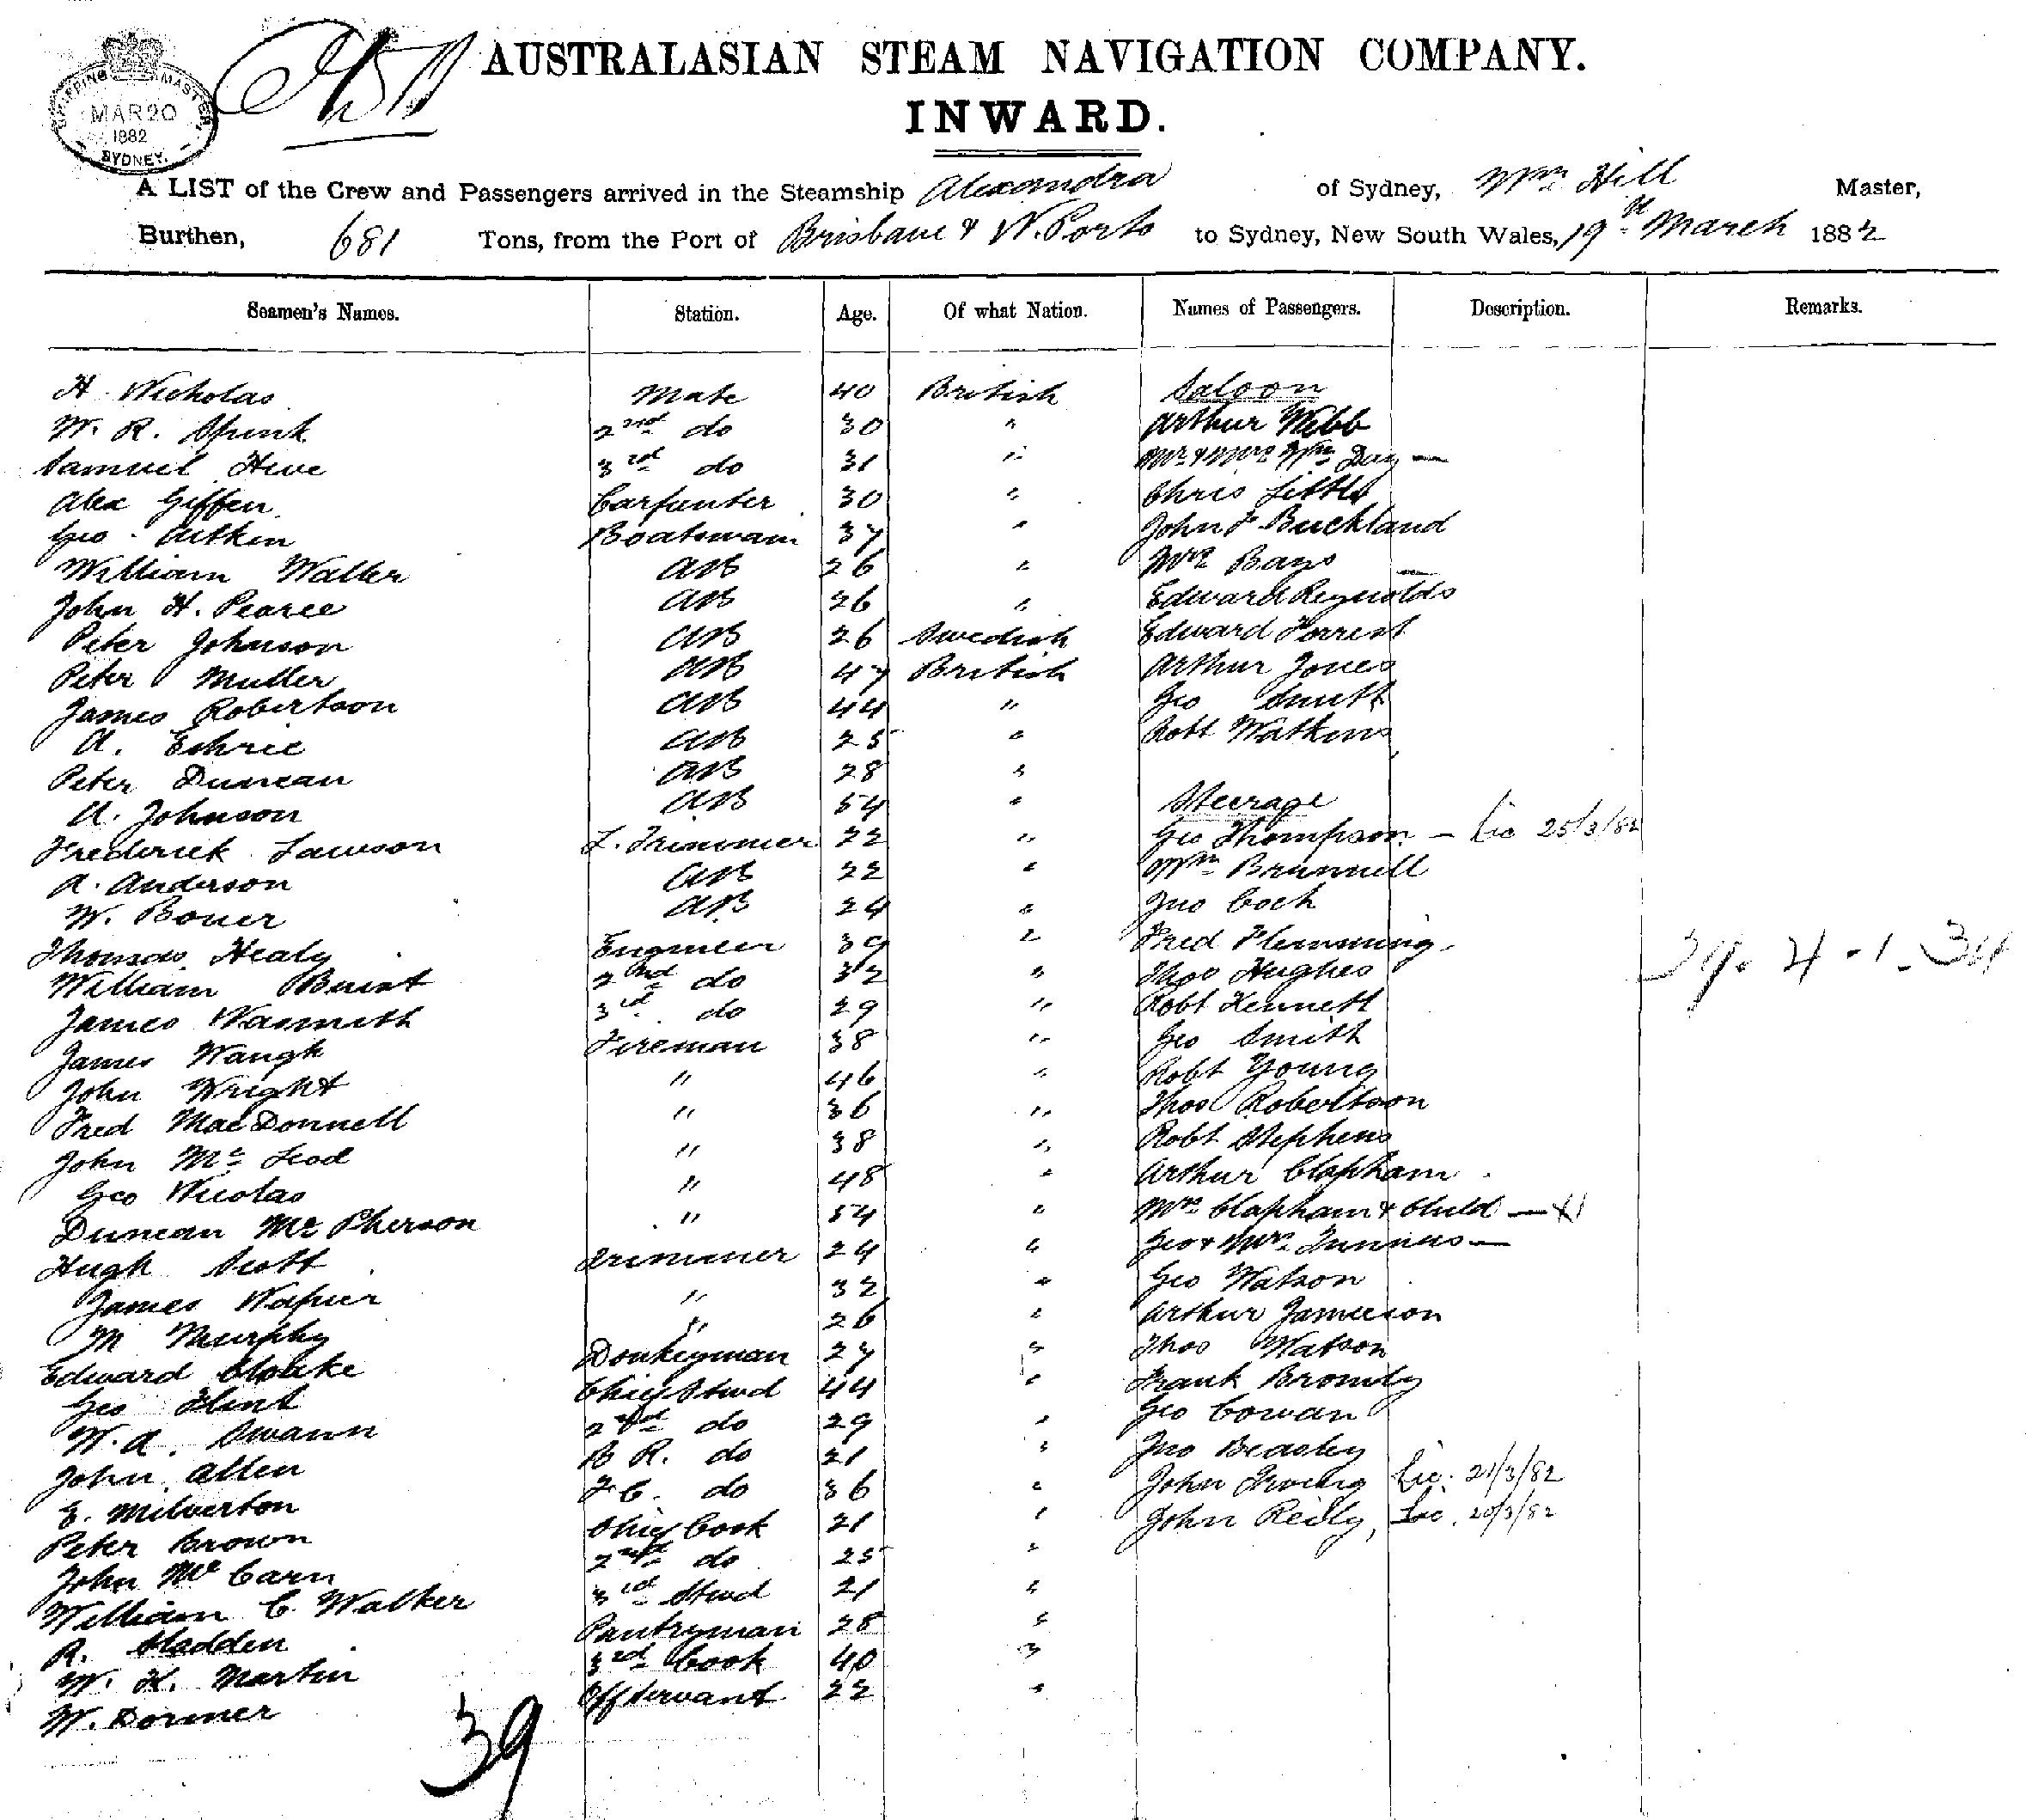 SHIPPING MASTER
MAR 20
1882
SYDNEY.
AUSTRALASIAN STEAM NAVIGATION COMPANY.
INWARD.
A LIST of the Crew and Passengers arrived in the Steamship Alexandra of Sydney, Wm Hill Master,
Burthen, 681 Tons, from the Port of Brisbane & N. Ports to Sydney, New South Wales, 19th March 1882
Seamen's Names. Station. Age. Of what Nation. Names of Passengers. Description. Remarks.
H. Nicholas Mate 40 British Saloon
W. R. Spink 2nd do 30 " Arthur Webb
Samuel Hive 3rd do 31 " Mr & Mrs Wm Day —
Alex Giffen Carpenter 30 " Chris Little
Geo. Aitken Boatswain 37 " John F Buckland
William Waller AB 26 " Mrs Bays —
John H. Pearce AB 26 " Edward Reynolds
Peter Johnson AB 26 Swedish Edward Forrest
Peter Muller AB 47 British Arthur Jones
James Robertson AB 44 " Geo Smith
A. Eshrie AB 25 " Robt Watkins
Peter Duncan AB 28 "
A. Johnson AB 54 " Steerage
Frederick Lawson L. Trimmer 22 " Geo Thompson — Lic 25/3/82
A. Anderson AB 22 " Wm Brunnell
W. Boner AB 24 " Jno Cock
Thomas Healy Engineer 39 " Fred Flemming
William Buist 2nd do 32 " Thos Hughes
James Wasmith 3rd do 29 " Robt Kennett
39. 4 - 1. 34
James Waugh Fireman 38 " Geo Smith
John Wright " 46 " Robt Young
Fred MacDonnell " 36 " Thos Robertson
John Mc Leod " 38 " Robt Stephens
Geo Nicolas " 48 " Arthur Clapham
Duncan Mc Pherson " 54 " Mrs Clapham & Child —
Hugh Scott Trimmer 24 " Geo & Mrs —
James Napier " 32 " Geo Watson
M Murphy " 26 " Arthur Jamieson
Edward Cloake Donkeyman 27 " Thos Watson
Geo Flint Chief Stwd 44 " Frank Bromily
W. A. Swann 2nd do 29 " Geo Cowan
John Allen B R. do 21 " Jno Beasley
E. Milverton F C. do 36 " John Irving Lic. 21/3/82
Peter Brown Chief Cook 21 " John Reily, Lic. 20/3/82
John Mc Carn 2nd do 25 "
William C. Walker 3rd Stwd 21 "
R. Sladden Pantryman 28 "
W. H. Martin 3rd Cook 40 "
W. Dormer Off Servant 22 "
39